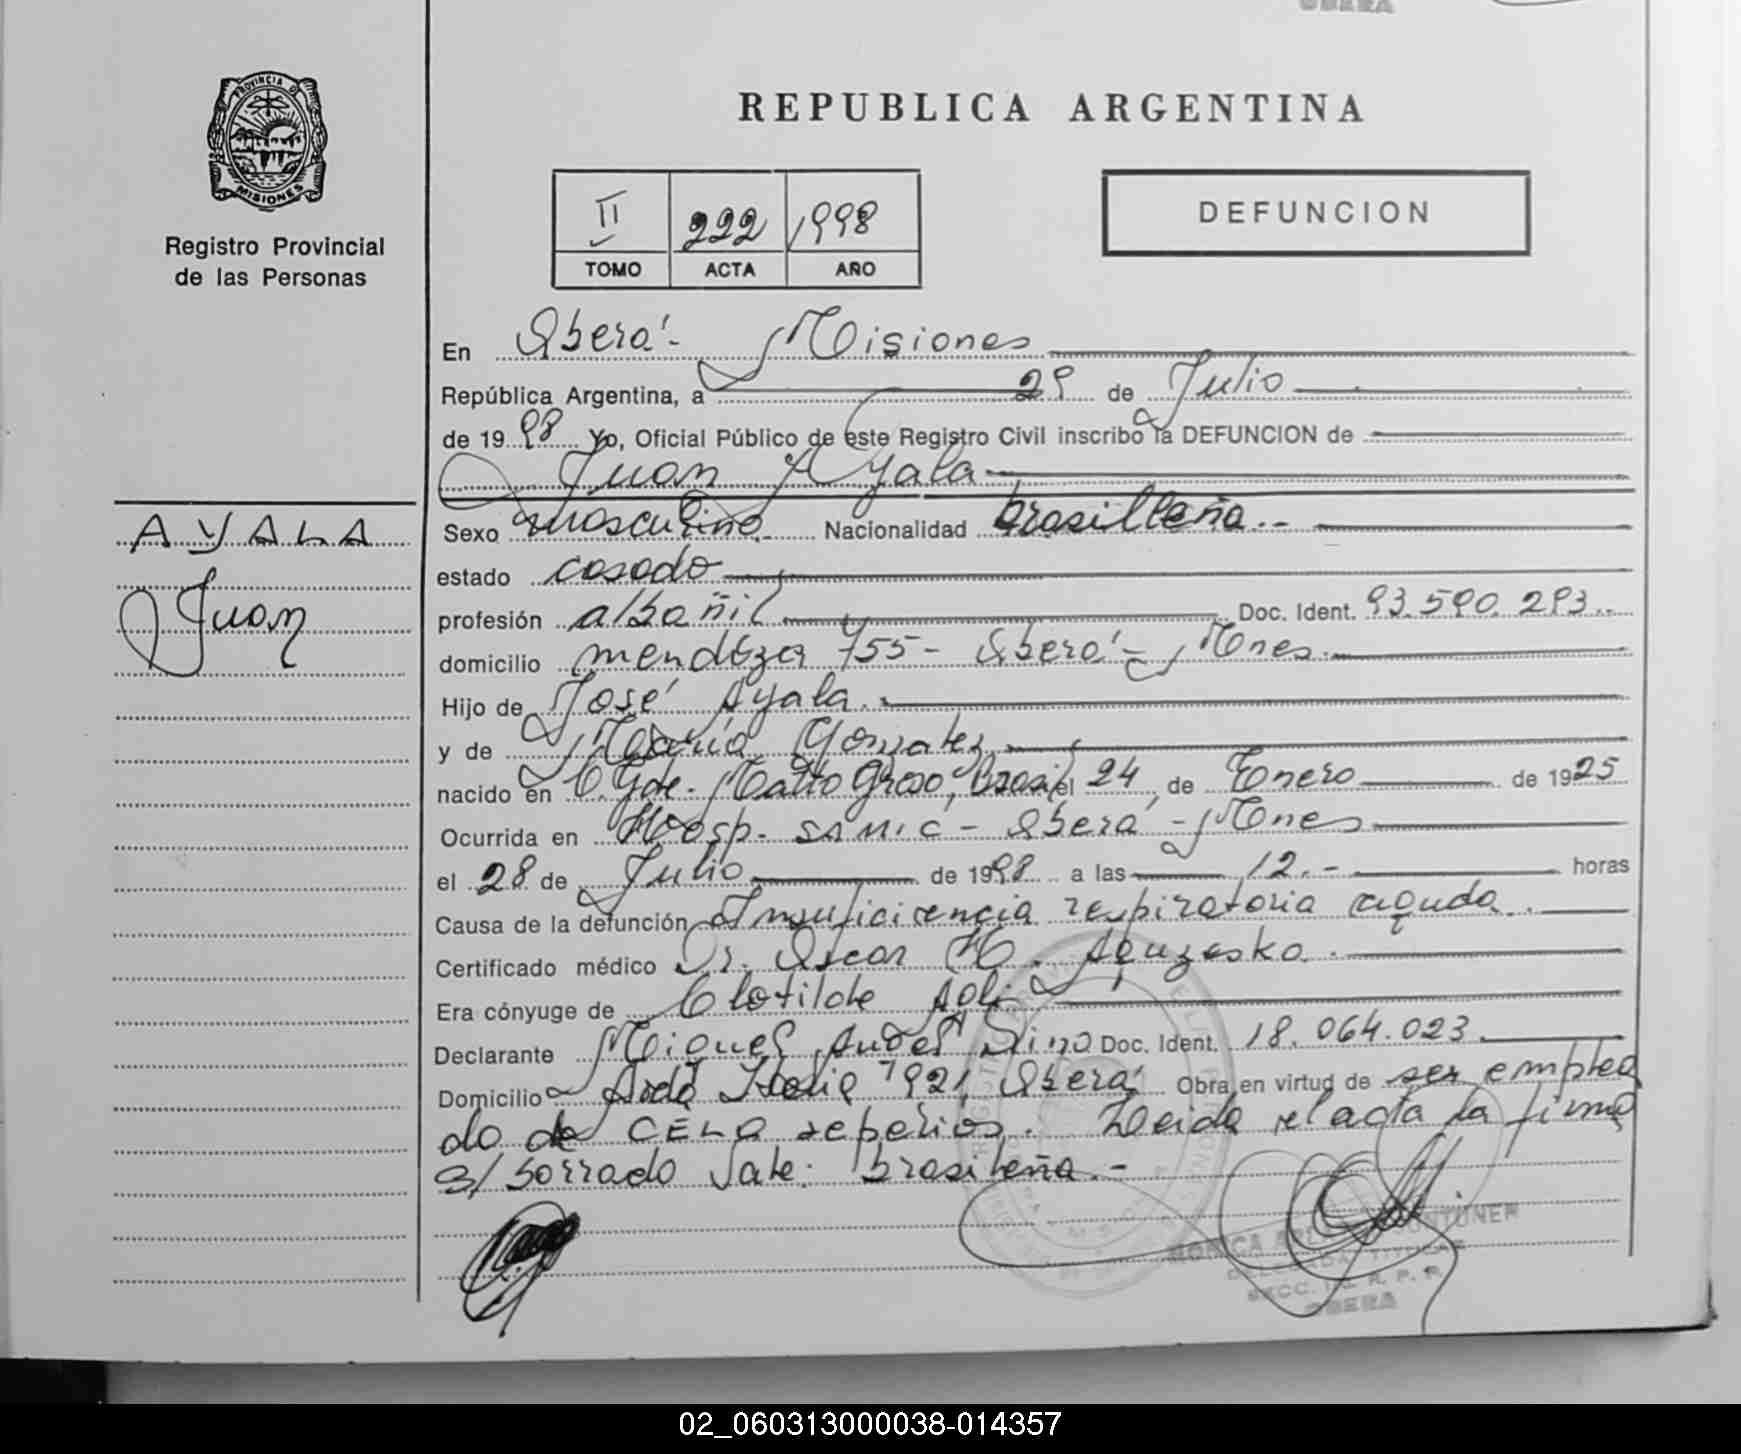 OBERA
PROVINCIA D
MISIONES
Registro Provincial
de las Personas
REPUBLICA ARGENTINA
II 222 1998
TOMO ACTA AÑO
DEFUNCION
En Oberá- Misiones
República Argentina, a 29 de Julio
de 1998 Yo, Oficial Público de este Registro Civil inscribo la DEFUNCION de
Juan Ayala
AYALA
Juan
Sexo masculino Nacionalidad brasilleña.-
estado casado
profesión albañil Doc. Ident. 93.590.293..
domicilio mendoza 755- Oberá- Mnes.
Hijo de José Ayala.
y de María Gonzalez
nacido en C. Gde. Matto Groso, Brasil el 24, de Enero de 1925
Ocurrida en Hosp. SAMIC - Oberá - Mnes
el 28 de Julio de 1998 a las 12.- horas
Causa de la defunción Insuficiencia respiratoria aguda.
Certificado médico Dr. Oscar H.
Era cónyuge de Clotilde
Declarante Miguel Doc. Ident. 18.064.023
Domicilio Avda Italia 921, Oberá Obra en virtud de ser emplea
do de CELO sepelios. Leida el acta la firma
S/ borrado Vale: brasileña.-
OBERA
02_060313000038-014357